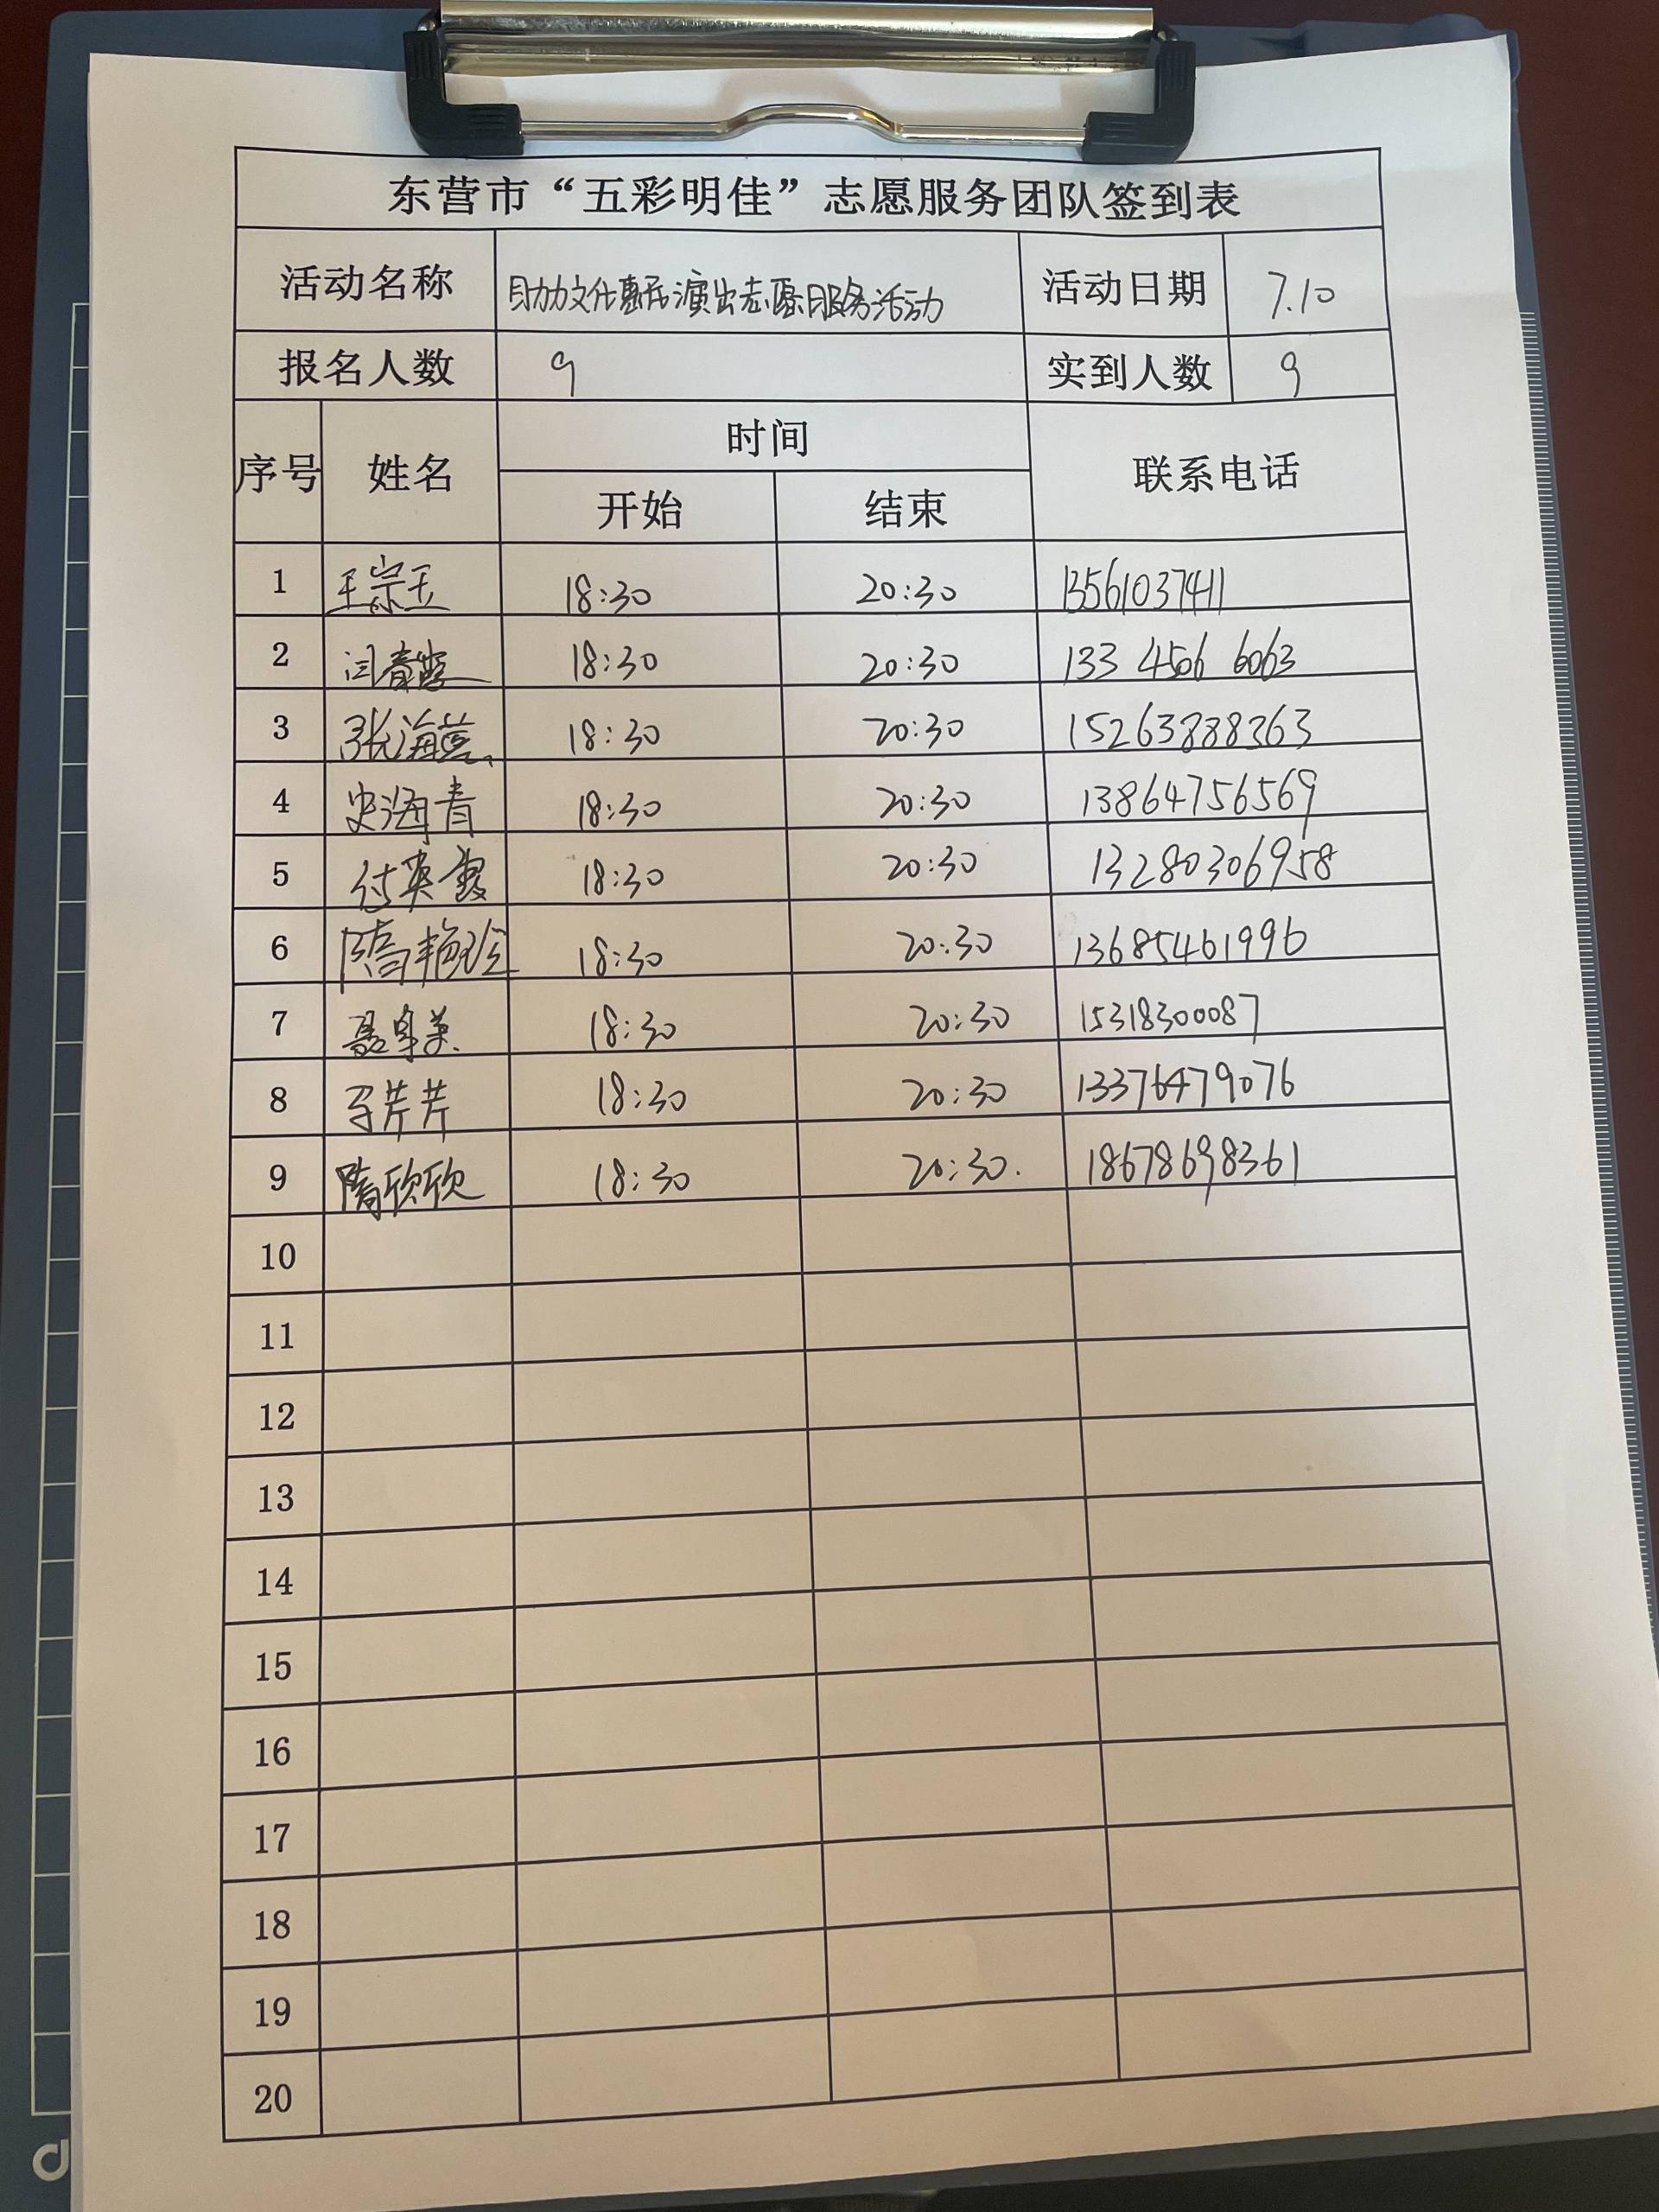 东营市“五彩明佳”志愿服务团队签到表
活动名称 助力文化惠民演出志愿服务活动 活动日期 7.10
报名人数 9 实到人数 9
序号 姓名 时间 联系电话
开始 结束
1 王宗玉 18:30 20:30 13561037411
2 闫春霞 18:30 20:30 133 4506 6063
3 张海燕 18:30 20:30 15263888363
4 史海青 18:30 20:30 13864756569
5 付英霞 18:30 20:30 13280306958
6 隋艳玲 18:30 20:30 13685461996
7 18:30 20:30 15318300087
8 芹芹 18:30 20:30 13376479076
9 隋欣欣 18:30 20:30. 18678698361
10
11
12
13
14
15
16
17
18
19
20
d